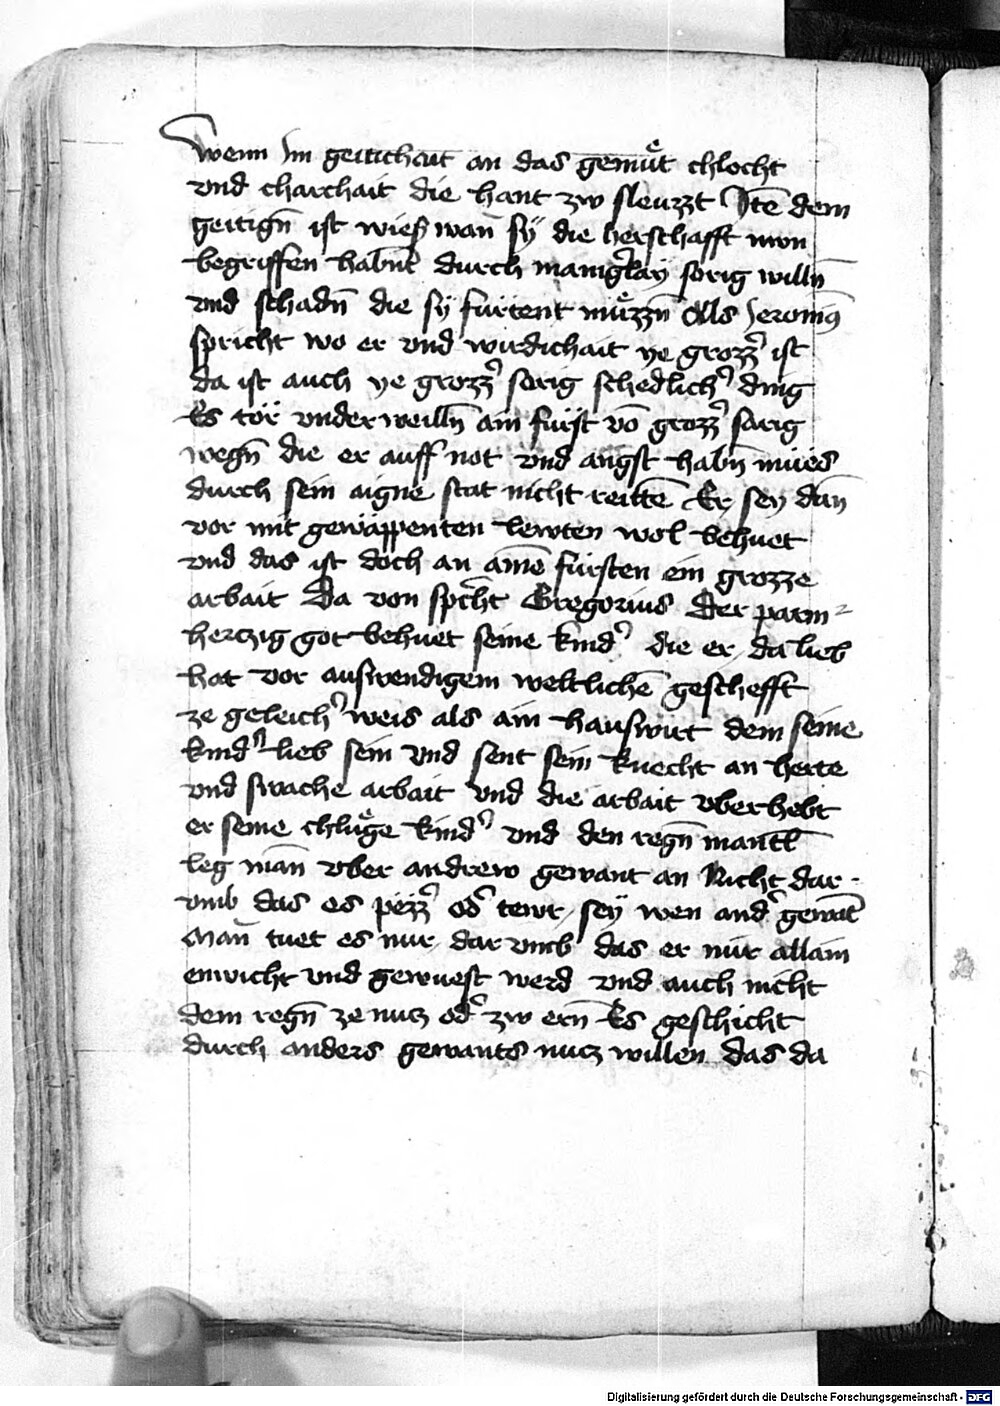 wenn im geitichait an das gemuͤt chlocht
vnd charchait die hant zw sleuzzt Itē dem
geitign̄ ist wies wan̄ sÿ die herschafft nun
begriffen habn̄t durch manigˀlaÿ sorig willn̄
vnd schadn̄ die sÿ furtent muͤzzn̄ Als Jeronimꝰ
spricht wo er vnd wirdichait ye grozzˀ ist
da ist auch ye grozzˀ sorig schedlichˀ ding
Es tör vnderweilln̄ ain fürst vō grozzˀ sorig
wegn̄ die er auff not vnd angst habn̄ mües
durch sein aigne stat nicht reittē Er sey dan̄
vor mit gewäppenten lewten wol behuet
vnd das ist doch an aīnē fürsten ein grozze
arbait Da von spͬcht Gregorius Der parm=
hertzig got behuet seine kindˀ die er da lieb
hat vor auswendigem weltlichē geschefft
ze geleichˀ weis als ain hauswirt dem seine
kindˀ lieb sein vnd sent sein knecht an herte
vnd swache arbait vnd die arbait vberhebt
er seine chluͤge kindˀ vnd den regn̄ mantl̄
leg man̄ vber andrew gewant an Nicht dar-
vmb das es pezzˀ odˀ tewr seÿ wen andˀ gewāt
Man̄ tuet es nur dar vmb das er nür allain
enwicht vnd gewuest werd vnd auch nicht
dem regn̄ ze nucz odˀ zw ern̄ Es geschicht
durch anders gewants nucz willen das da
Digitalisierung gefördert durch die Deutsche Forschungsgemeinschaft - DFG